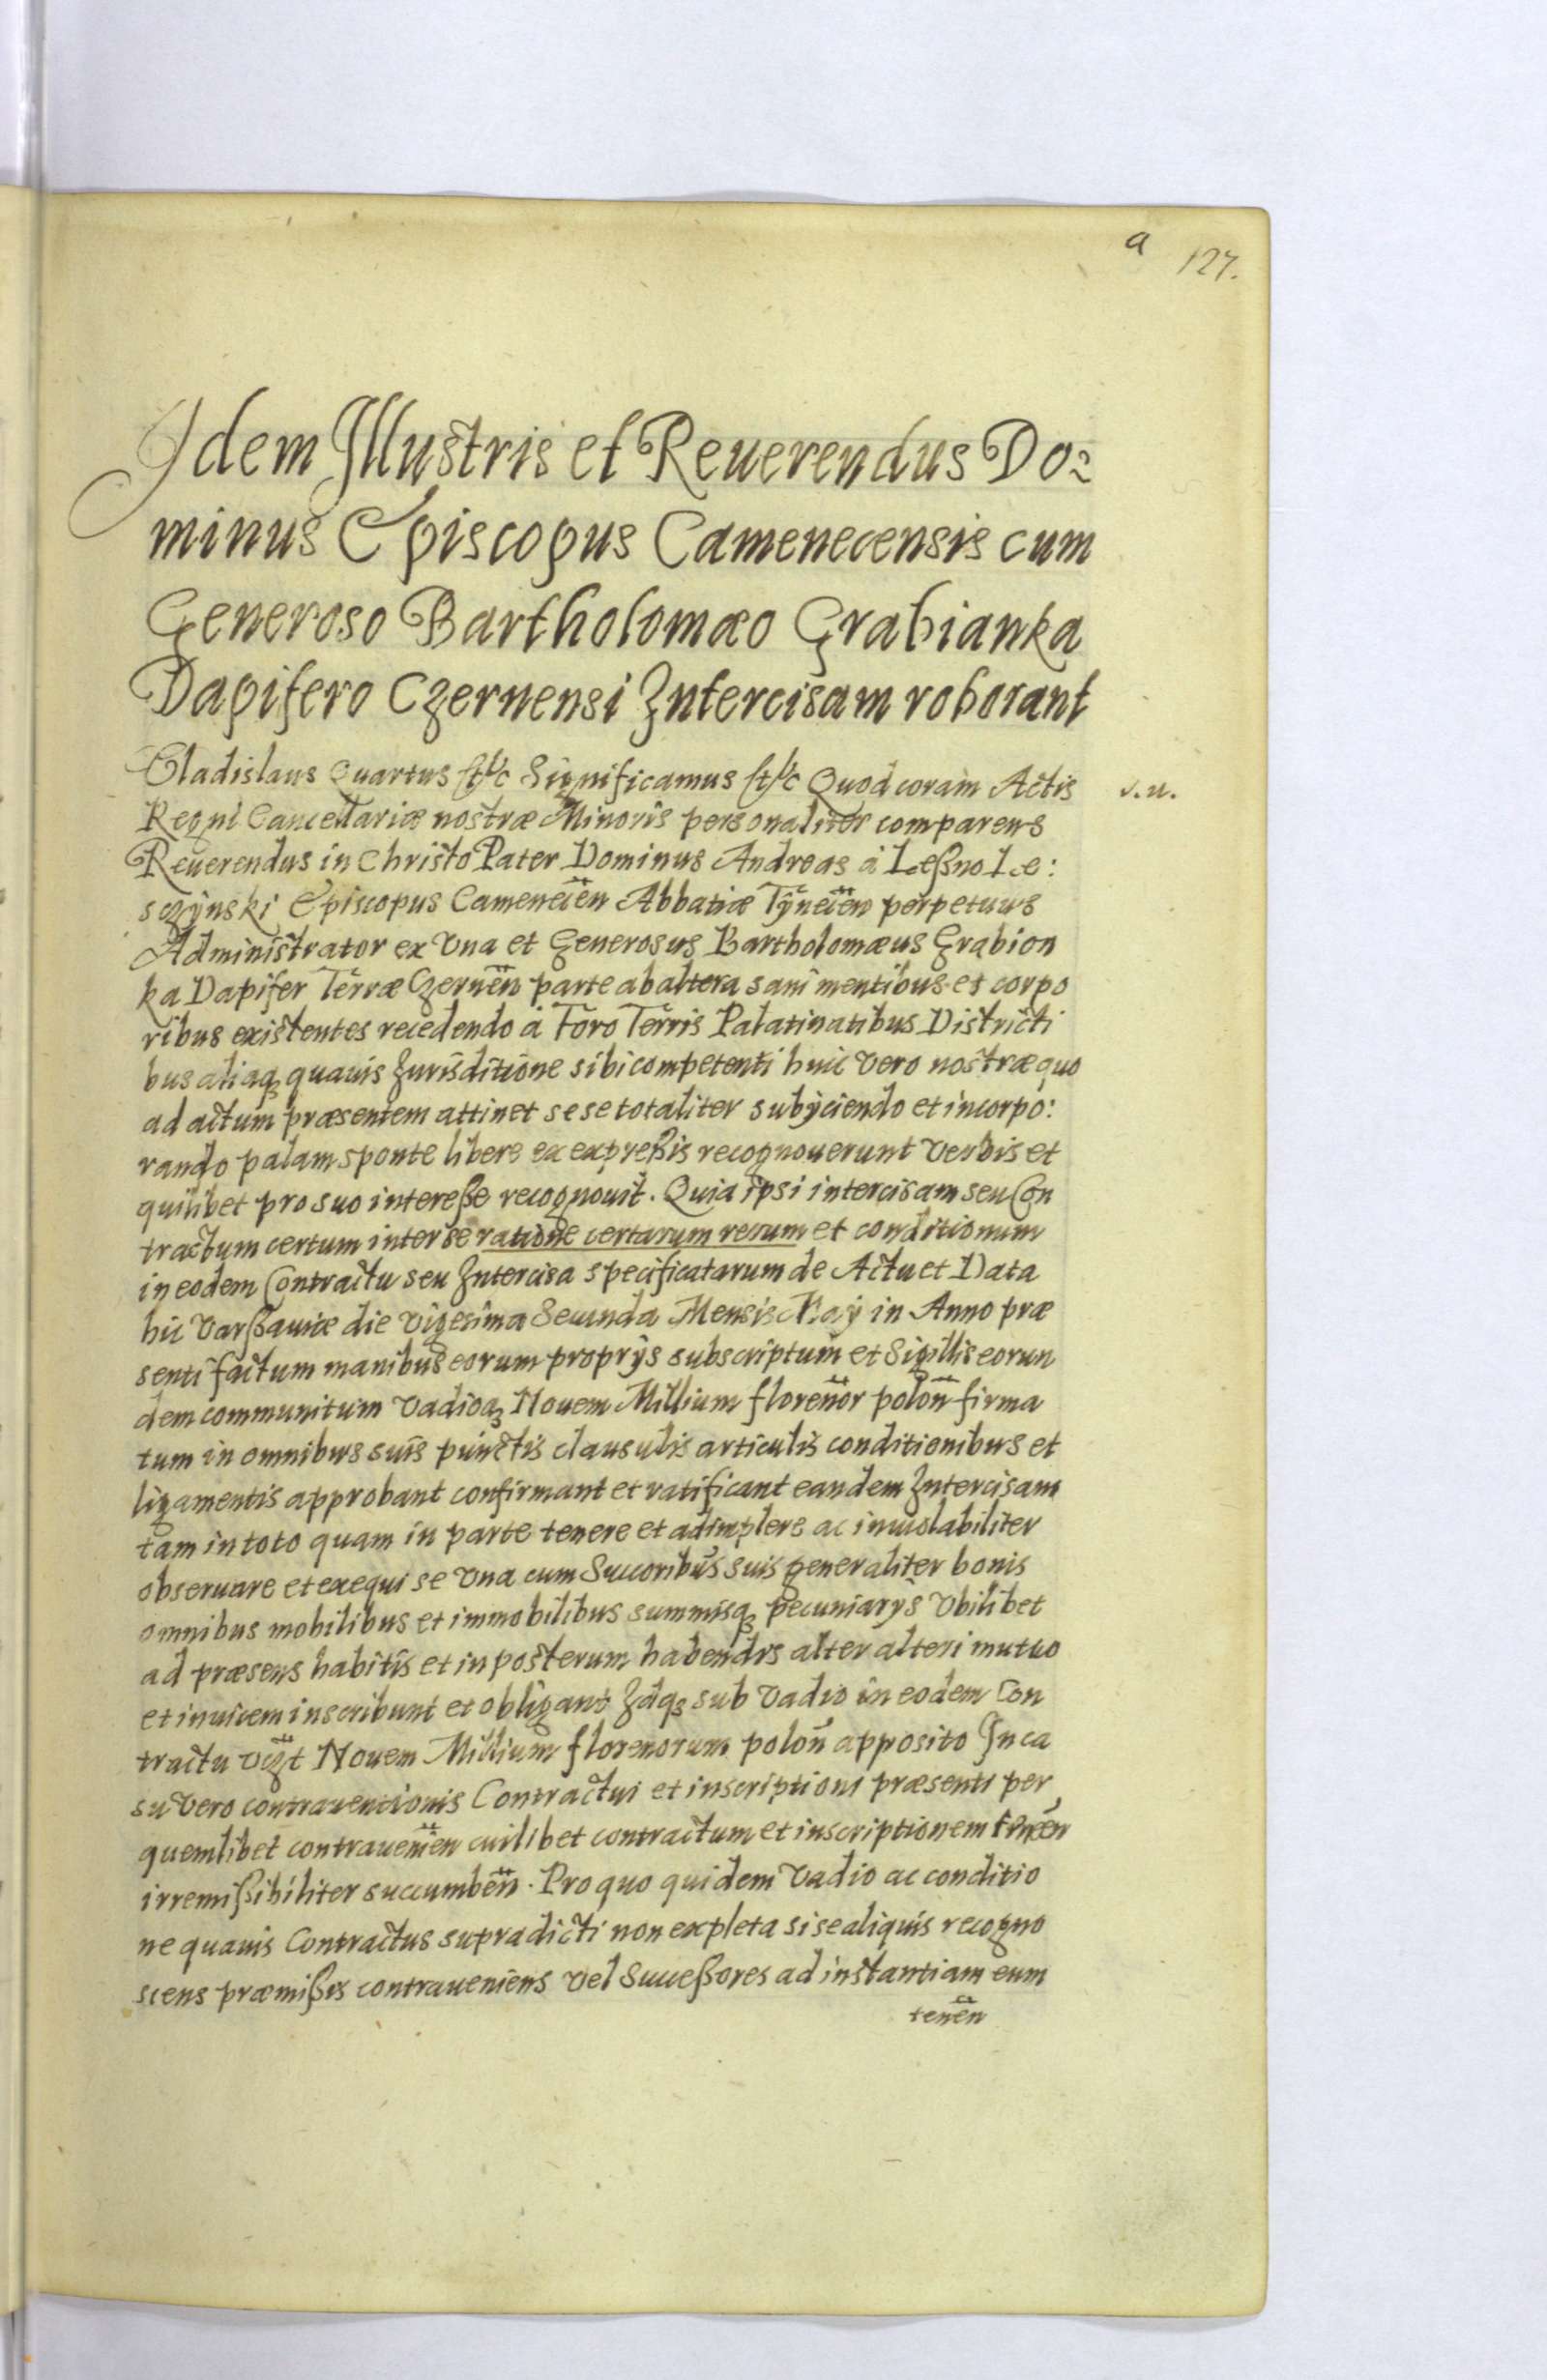 a 127.
Idem Illustris et Reuerendus Do=
minus Episcopus Camenecensis cum
Generoso Bartholomæo Grabianka
Dapifero Czernensi Intercisam roborant
Vladislaus Quartus etc Significamus etc Quod coram Actis
s. u.
Regni Cancellariæ nostræ Minoris personaliter comparens
Reuerendus in Christo Pater Dominus Andreas à Leßno Le:
sczÿnski Episcopus Camenecien̄ Abbatiæ Tÿnecien̄ perpetuus
Administrator ex Vna et Generosus Bartholomæus Grabion
ka Dapifer Terræ Czernen̄ parte ab altera sani mentibus et corpo
ribus existentes recedendo à Foro Terris Palatinatibus Districti
bus aliaqꝫ quauis Jurisditione sibi competenti huic vero nostræ quo
ad actum præsentem attinet sese totaliter subÿciendo et incorpo:
rando palam sponte libere ex expreßis recognouerunt verbis et
quilibet pro suo intereße recognouit. Quia ipsi intercisam seu Con
tractum certum inter se ratione certarum rerum et conditionum
in eodem Contractu seu Intercisa specificatarum de Actu et Data
hic Varßauiæ die Vigesima Secunda Mensis Maÿ in Anno præ
senti factum manibus eorum proprÿs subscriptum et Sigillis eorun
dem communitum Vadioqꝫ Nouem Millium floren̄or polon̄ firma
tum in omnibus suis punctis clausulis articulis conditionibus et
ligamentis approbant confirmant et ratificant eandem Intercisam
tam in toto quam in parte tenere et adimplere ac inuiolabiliter
obseruare et exequi se Vna cum Succoribus suis generaliter bonis
omnibus mobilibus et immobilibus summisqꝫ pecuniarÿs Vbilibet
ad præsens habitis et in posterum habendis alter alteri mutuo
et inuicem inscribunt et obligant Idqꝫ sub Vadio in eodem Con
tractu vꝫt Nouem Millium florenorum polon̄ apposito In ca
su vero contrauentionis Contractui et inscriptioni præsenti per
quemlibet contrauenien̄ cuilibet contractum et inscriptionem
irremißibiliter succumben̄. Pro quo quidem Vadio ac conditio
ne quauis Contractus supradicti non expleta si se aliquis recogno
scens præmißis contraueniens vel Succeßores ad instantiam eum
tenen̄